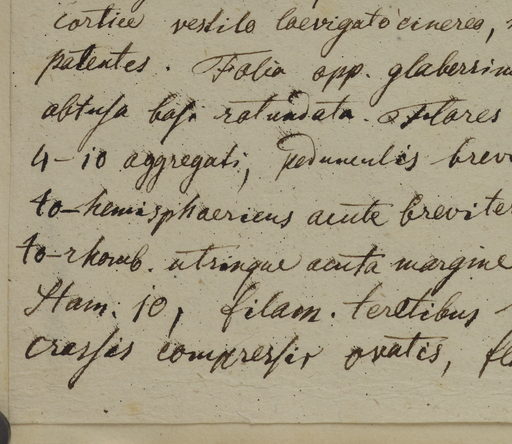 cortice vestito laevigato cinereo,
patentes. Folia opp. glaberrim
obtusa basi rotundata. Flores
4-10 aggregati, pedunculis brevi
to-hemisphaericus acute breviter
to-rhomb. utrinque acuta margine
Stam. 10, filam. teretibus
crassis compressis ovatis, fl